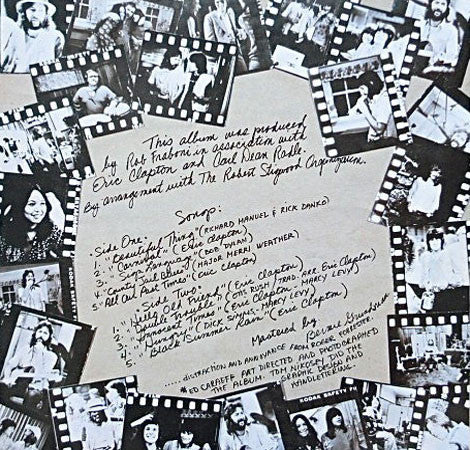 This album was produced
by Rob Fraboni in association with
Eric Clapton and Carl Dean Radle.
By arrangement with The Robert Stigwood Organization.
Songs:
Side One.
1. "Beautiful Thing" (RICHARD MANUEL & RICK DANKO)
2. "Carnival" (Eric Clapton)
3. "Sign Language" (BOB DYLAN)
4. "County Jail Blues" (MAJOR MERRI WEATHER)
5. "All Our Past Times" (Eric Clapton)
Side Two.
1. "Hello Old Friend" (Eric Clapton)
2. "Double Trouble" (OTIS RUSH / TRAD. ARR. Eric Clapton)
3. "Innocent Times" (Eric Clapton, MARCY LEVY)
4. "Hungry" (DICK SIMS, MARCY LEVY)
5. "Black Summer Rain" (Eric Clapton)
Mastered by
..... DISTRACTION AND ANNOYANCE FROM ROGER FORRESTER.
ED CARAEFF ART DIRECTED AND PHOTOGRAPHED
THE ALBUM. TOM NIKOSEY DID THE
GRAPHIC DESIGN AND
HANDLETTERING.
KODAK SAFETY